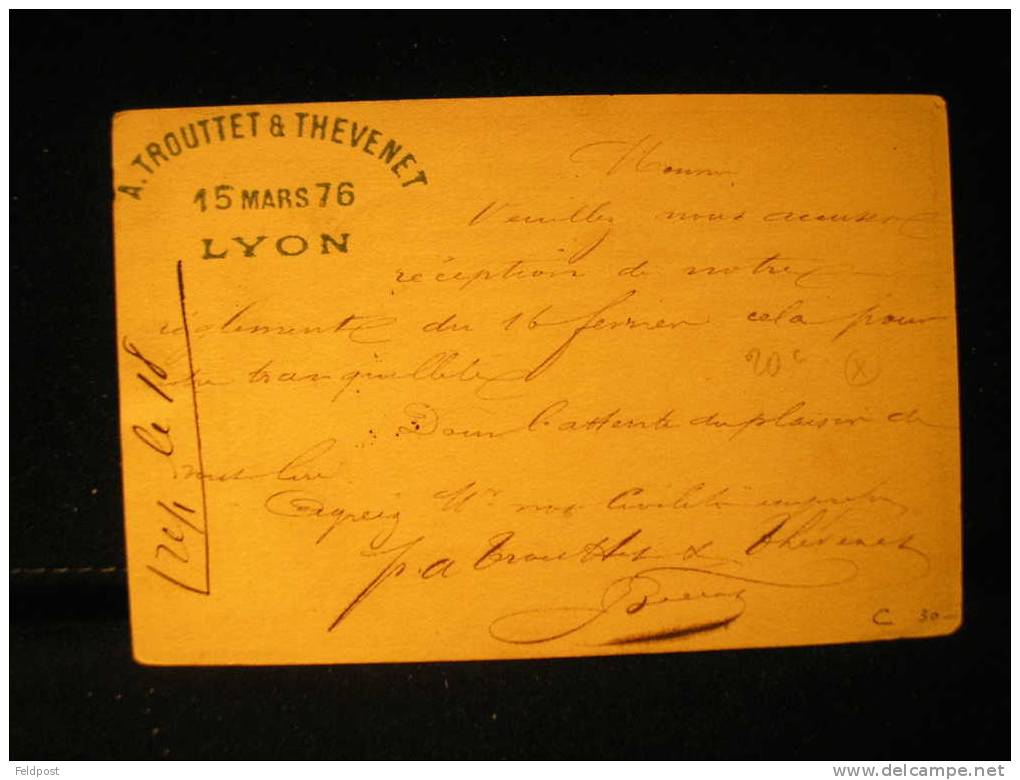 A. TROUTTET & THEVENET
15 MARS 76
LYON
Veuillez nous accuser
réception de notre
règlement du 16 fevrier cela pour
tranquillité
Dans l'attente du plaisir de
nous lire
Agréez Mr nos Civilités empressées
p. A Trouttet & Thevenet
20 c
le 18
C 30-
Feldpost
www.delcampe.net